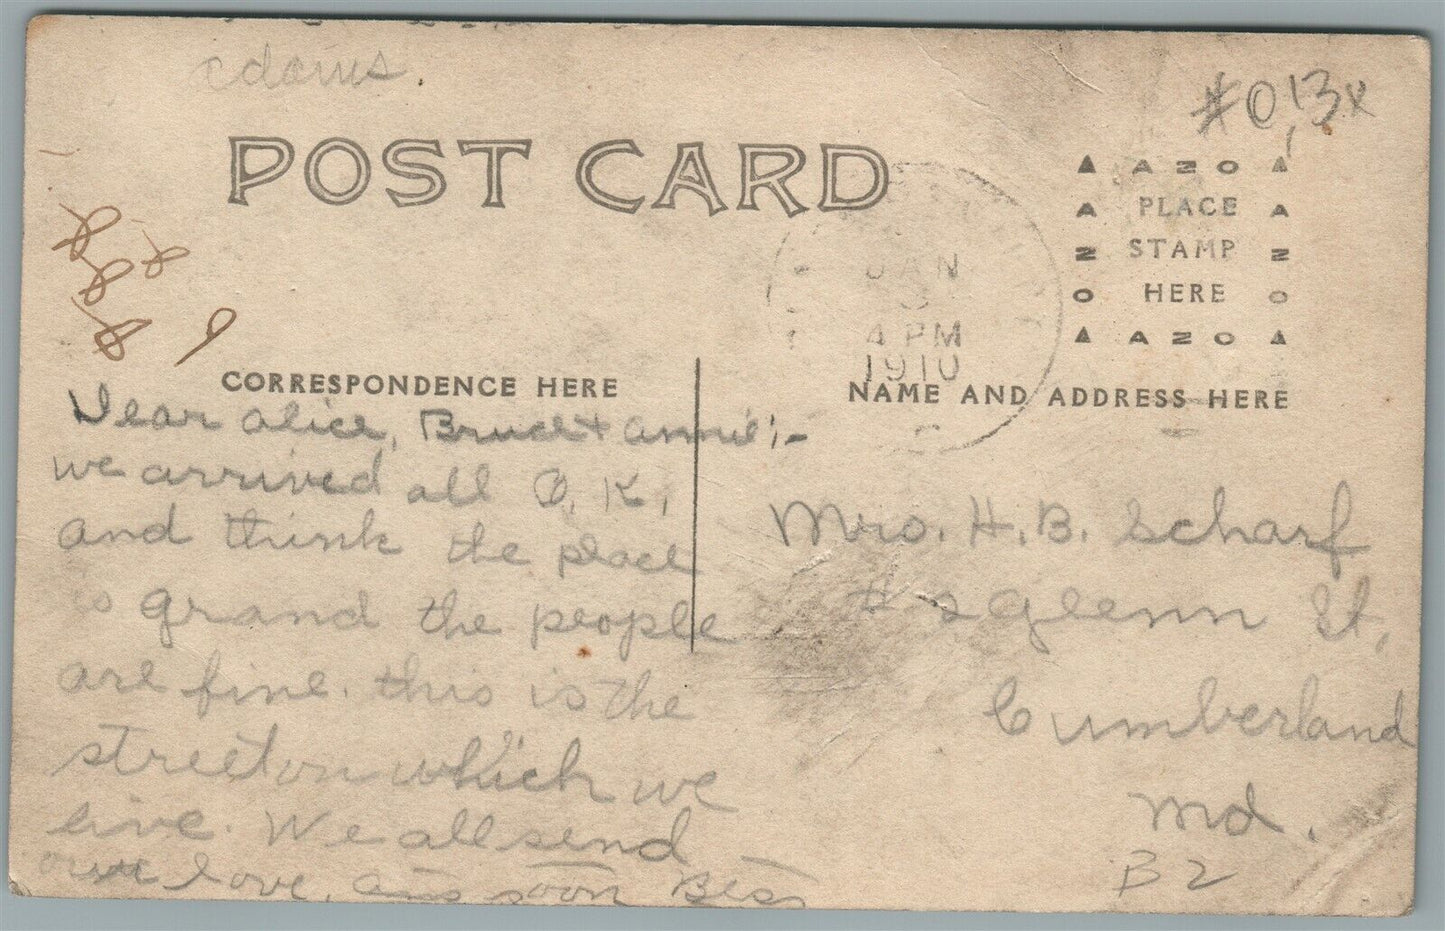 adams.
#013x
POST CARD
A AZO A
A PLACE A
Z STAMP Z
O HERE O
A AZO A
JAN
4 PM
1910
CORRESPONDENCE HERE
NAME AND ADDRESS HERE
Dear Alice, Bruce + Annie;-
we arrived all O.K.,
and think the place
is grand the people
are fine. this is the
street on which we
live. We all send
our love, ans soon Bess
Mrs. H. B. Scharf
Glenn St,
Cumberland
Md.
B2